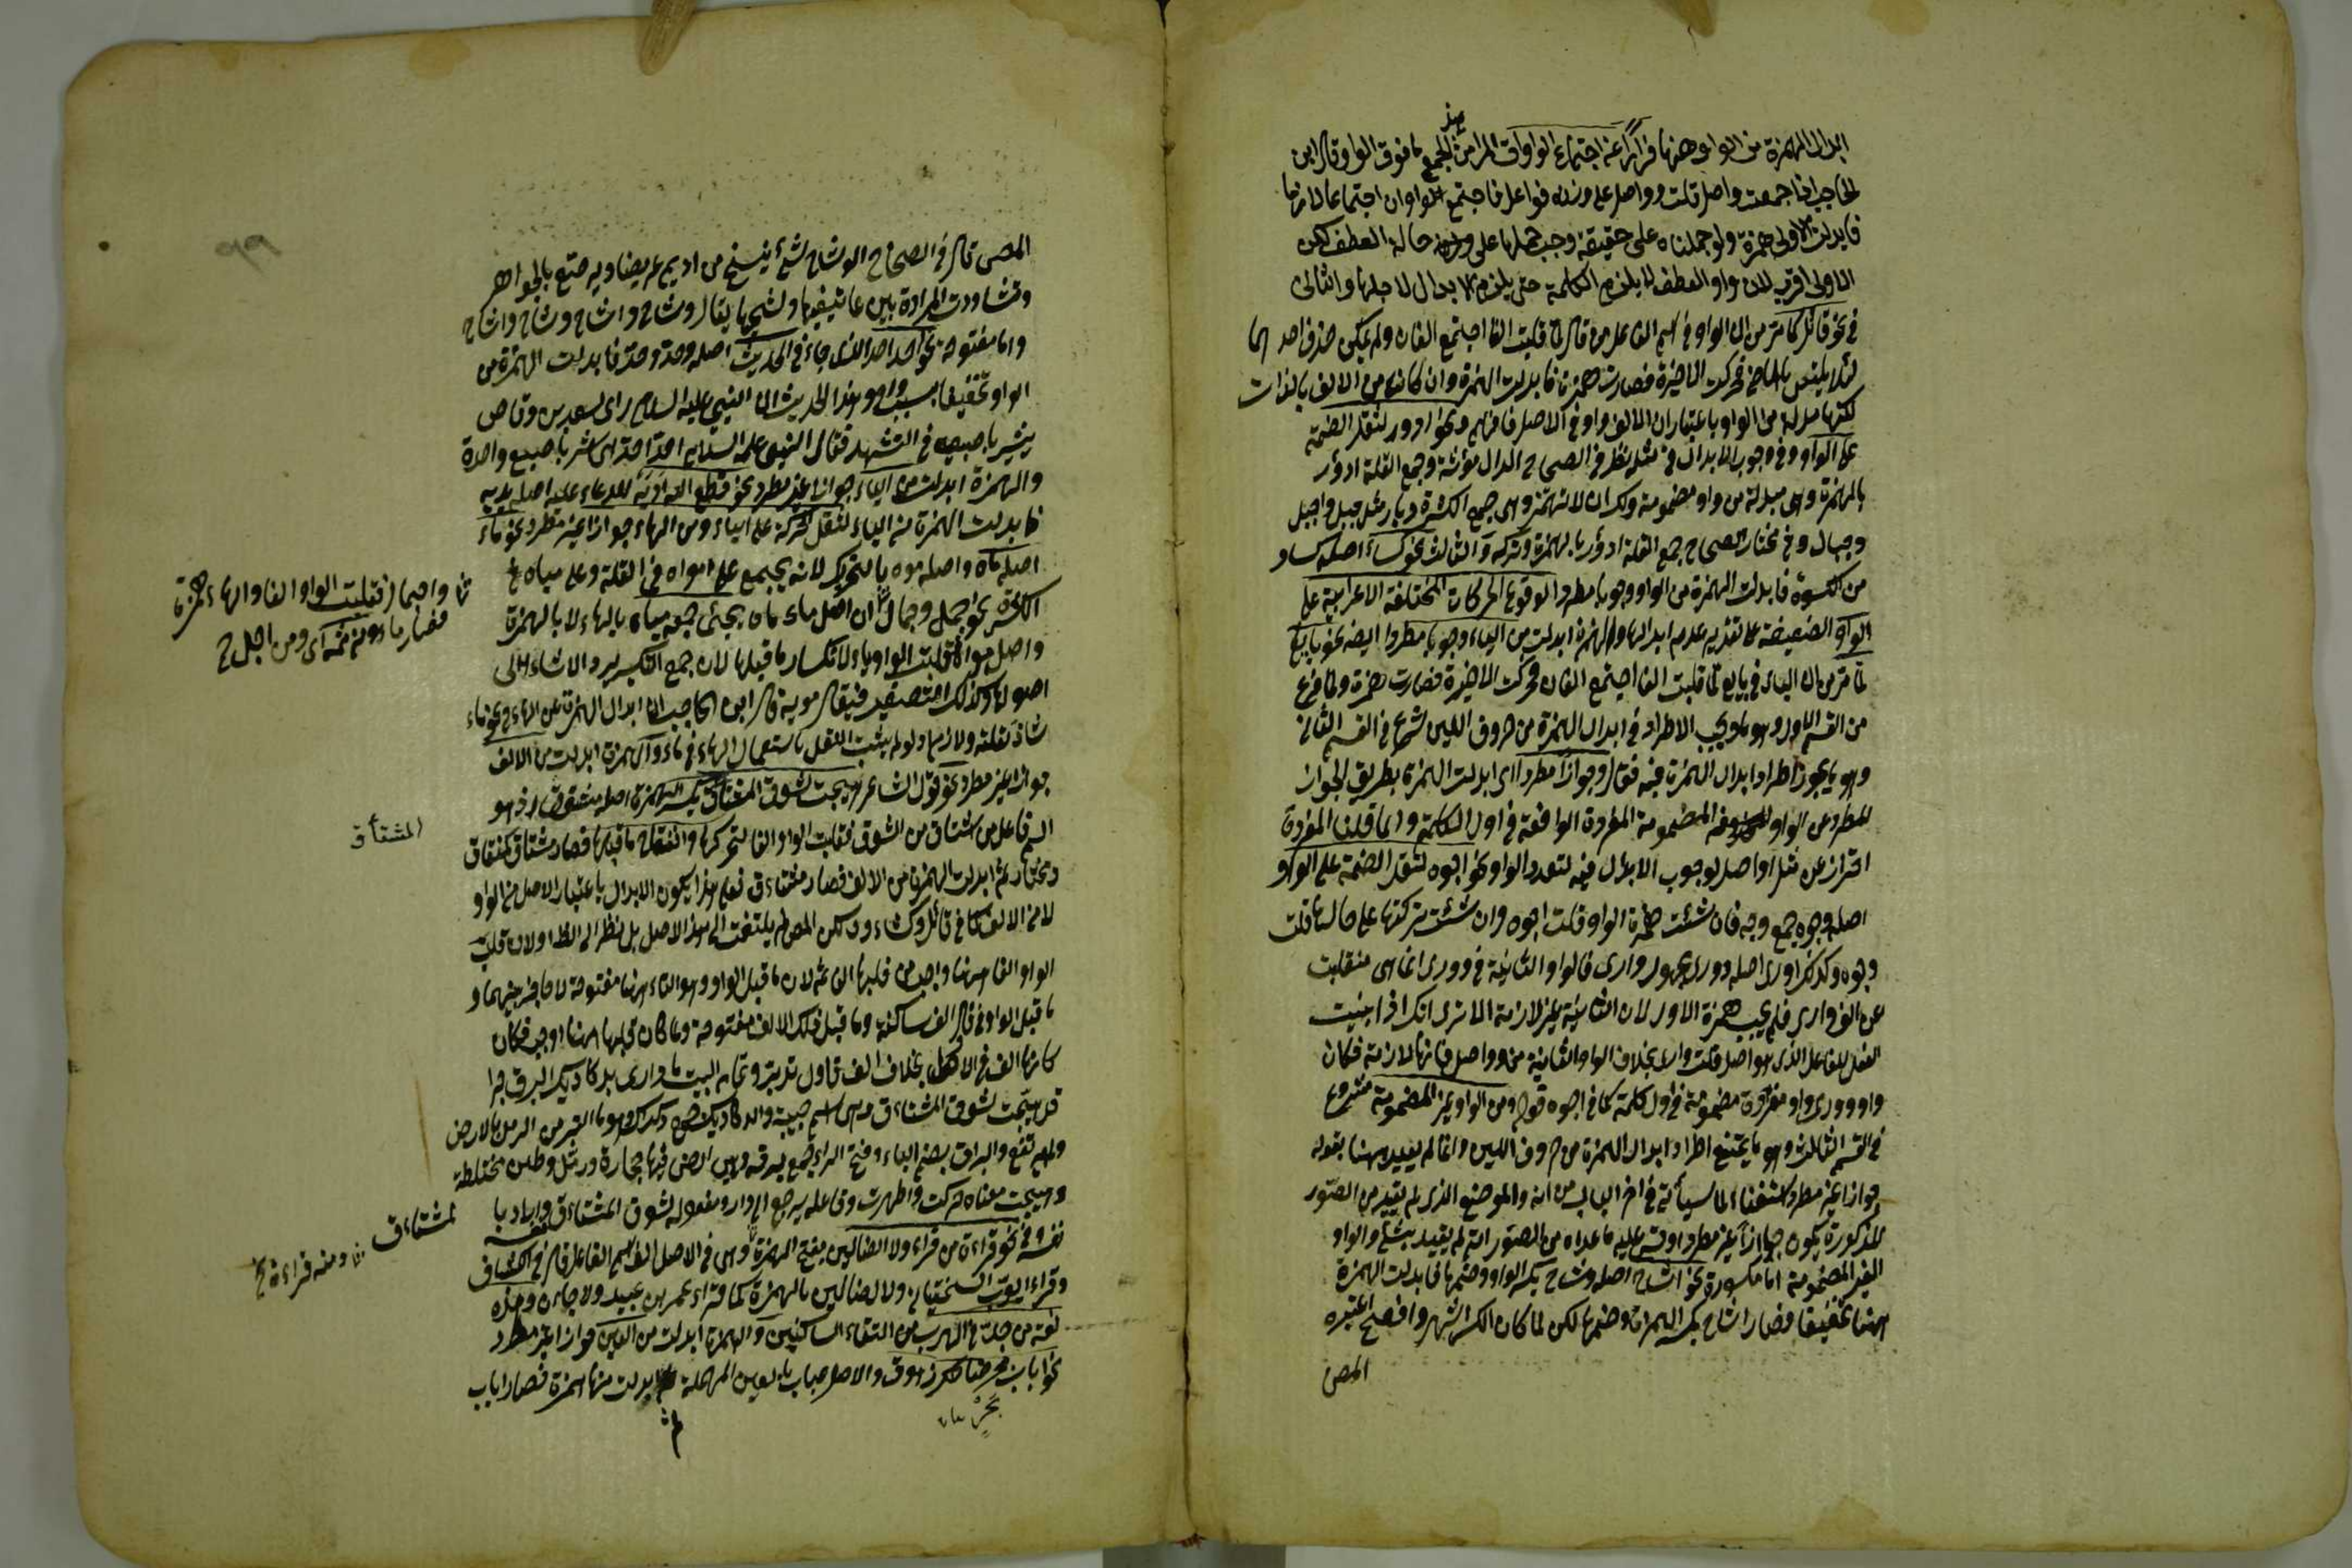 ابدال الهمزة من الواو وههنا فرارا عن اجتماع الواوات المراد من الجمع ما فوق الواو قال ابن
الحاجب اذا جمعت واصل قلت وواصل على وزن فواعل فاجتمع الواوان اجتماعا لازما
فابدلت الاولى همزة ولو حملناه على حقيقة وجب حملها على حالة العطف لكن
الاولى اقرب لان واو العطف لا يلزم الكلمة حتى يلزم الابدال لاجلها والثانى
فى نحو قائل كما مر من ان الواو فى اسم الفاعل من قال لما قلبت الفا اجتمع الفان ولم يمكن حذف احدهما
لئلا يلتبس بالماضى فحركت الاخيرة فصارت همزة فابدلت الهمزة وان كانت من الالف بالذات
لكنها مبدلة من الواو باعتبار ان الالف واو فى الاصل فافهم ونحو ادؤر لثقل الضمة
على الواو وفى وجوب الابدال فى مثله نظر فى الصحاح الدار مؤنثة وجمع القلة ادؤر
بالهمزة وهى مبدلة من واو مضمومة ولك ان لا تهمز وهى جمع الكثرة ديار مثل جبل واجبل
وجبال وفى مختار الصحاح جمع القلة ادؤر بالهمزة وتركه والثالث نحو كساء اصله كساو
من الكسوة فابدلت الهمزة من الواو وجوبا مطردا لوقوع الحركات المختلفة الاعرابية على
الواو الضعيفة على تقدير عدم ابدالها والهمزة ابدلت من الياء وجوبا مطردا ايضا نحو بايع
لما مر من ان الياء فى بايع لما قلبت الفا اجتمع الفان فحركت الاخيرة فصارت همزة ولما فرغ
من القسم الاول وهو ما يجب الاطراد فى ابدال الهمزة من حروف اللين شرع فى القسم الثانى
وهو ما يجوز اطراد ابدال الهمزة فيه فقال وجوازا مطردا اى ابدلت الهمزة بطريق الجواز
المطرد من الواو المضمومة المفردة الواقعة فى اول الكلمة وانما قلنا المفردة
احتراز عن مثل اواصل لوجوب الابدال فيه لتعدد الواو نحو اجوه لثقل الضمة على الواو
اصله وجوه جمع وجه فان شئت همزة الواو قلت اجوه وان شئت تركتها على حالها قلت
وجوه وكذلك اورى اصله وورى مجهول وارى فالواو الثانية فى وورى انما هى منقلبت
عن الف وارى فلم يجب همزة الاول لان الثانية غير لازمة الا ترى انك اذا بنيت
الفعل للفاعل الذى هو اصل قلت وارى بخلاف الواو الثانية من وواصل فانها لازمة فكان
واو وورى واو مفردة مضمومة فى اول كلمة كما فى اجوه قوله ومن الواو غير المضمومة شروع
فى القسم الثالث وهو ما يمتنع اطراد ابدال الهمزة من حروف اللين وانما لم يقيد ههنا بقوله
جوازا غير مطرد استغناء لما سيأتى فى اخر الباب من انه والموضع الذى لم يقيد من الصور
المذكورة يكون جوازا غير مطرد او قس عليه ما عداه من الصور انه لم يقيد بشئ والواو
الغير المضمومة اما مكسورة نحو اشاح اصله وشاح بكسر الواو وضمها فابدلت الهمزة
ههنا تخفيفا فصار اشاح بكسر الهمزة وضمها لكن لما كان الكسر اشهر وافصح اعتبره
المص
المص قال فى الصحاح الوشاح شئ ينسج من اديم عريضا ويرصع بالجواهر
وتشده المرأة بين عاتقيها وكشحيها يقال وشاح واشاح وشاح واشاح
واما مفتوحة نحو احد احد الذى جاء فى الحديث اصله وحد وحد فابدلت الهمزة من
الواو تخفيفا وهذا الحديث ان النبى عليه السلام راى سعد بن وقاص
يشير باصبعيه فى التشهد فقال النبى عليه السلام احد احد اى اشر باصبع واحدة
والهمزة ابدلت من الياء جوازا غير مطرد نحو قطع الله اديه للدعاء عليه اصله يديه
فابدلت الهمزة من الياء لثقل الحركة على الياء ومن الهاء جوازا غير مطرد نحو ماء
اصله ماه واصله موه بالتحريك لانه يجمع على امواه فى القلة وعلى مياه فى
الكثرة نحو جمل وجمال ان اصل ماء ماه يجئ جمعه مياه بالهاء لا بالهمزة
واصل مواه قلبت الواو ياء لانكسار ما قبلها لان جمع التكسير يرد الاشياء الى
اصولها وكذلك التصغير فيقال مويه قال ابن الحاجب ان ابدال الهمزة عن الهاء فى نحو ماء
شاذ لقلته ولازم اذ لو لم يثبت النقل باستعمال الهاء فى ماء والهمزة ابدلت من الالف
جوازا غير مطرد نحو قول الشاعر هيجت لشوق المشتاق بكسر الهمزة اصله مشتوق اذ هو
اسم فاعل من اشتاق من الشوق فقلبت الواو الفا لتحركها وانفتاح ما قبلها فصار مشتاق كمنقاق
ومختار ثم ابدلت الهمزة من الالف فصار مشتاءق فعلى هذا يكون الابدال باعتبار الاصل من الواو
لا من الالف كما فى قائل وكساء ولكن المص لم يلتفت الى هذا الاصل بل نظر الى الظاهر ولان قلب
الواو الفا ههنا واجب من قلبها الف ثم لان ما قبل الواو وهو التاء ههنا مفتوحة لا حاجز بينهما و
ما قبل الواو فى قال الف ساكنة وما قبل تلك الالف مفتوحة وما كان قبلها ههنا اوجب فكان
كانها الف فى الاصل بخلاف الف قاول تدبر وتمام البيت يا دارى بدكاديك البرق صبرا
قد هيجت لشوق المشتاءق اسم حبيبة والدكاديك جمع دكداك وهو ما التبد من الرمل بالارض
ولم يرتفع والبراق بضم الباء وفتح الراء جمع برقه وهى ارض فيها حجارة ورمل وطين مختلطة
وهيجت معناه حركت واظهرت وفاعله يرجع الى دار ومفعوله لشوق المشتاءق واراد بها
نفسه وفى نحو قراءة من قراء ولا الضالين بفتح الهمزة وهى فى الاصل الف اسم الفاعل قال فى الكشاف
وقراء ايوب السختيانى ولا الضالين بالهمزة كما قراء عمرو بن عبيد ولا جان وهذه
لغة من جد فى الهرب من التقاء الساكنين والهمزة ابدلت من العين جوازا غير مطرد
نحو اباب بحر ضاحك زهوق والاصل عباب بالعين المهملة ابدلت منها همزة فصار اباب
ثم
فقلبت الواو الفا والهاء همزة
فصار ماء ومن ثمه اى ومن اجل
المشتأق
المشتاءق
ومنه قراءة